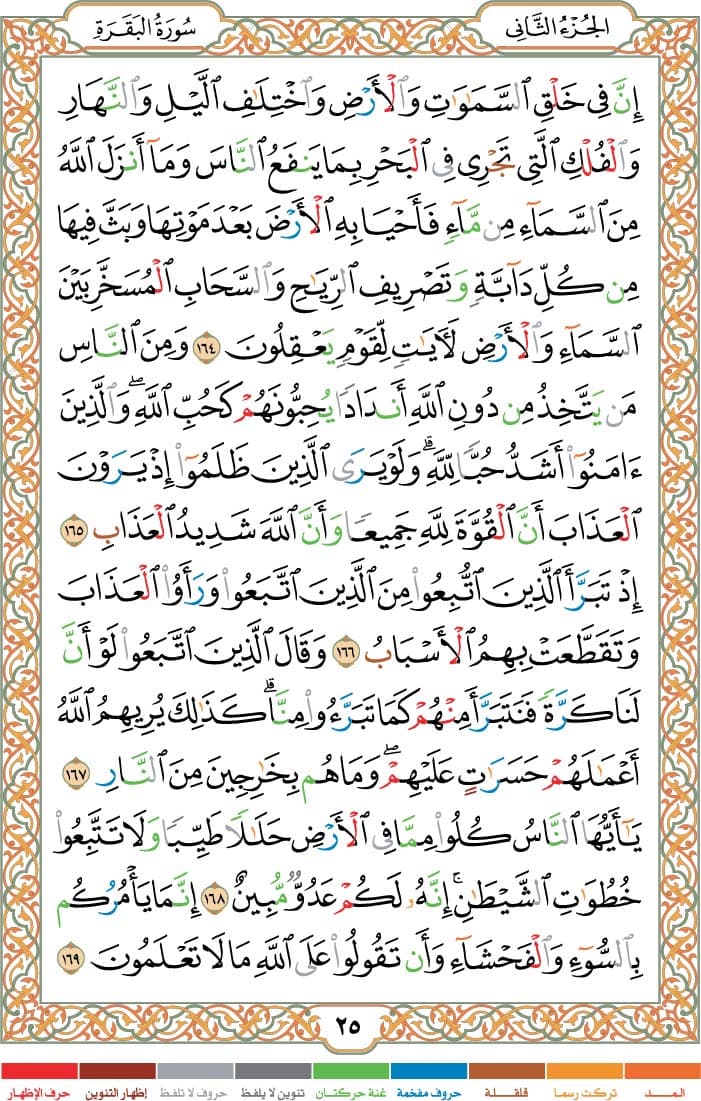 الجُزْءُ الثَّانِى
سُورَةُ البَقَرَةِ
إِنَّ فِى خَلْقِ ٱلسَّمَٰوَٰتِ وَٱلْأَرْضِ وَٱخْتِلَٰفِ ٱلَّيْلِ وَٱلنَّهَارِ
وَٱلْفُلْكِ ٱلَّتِى تَجْرِى فِى ٱلْبَحْرِ بِمَا يَنفَعُ ٱلنَّاسَ وَمَآ أَنزَلَ ٱللَّهُ
مِنَ ٱلسَّمَآءِ مِن مَّآءٍ فَأَحْيَا بِهِ ٱلْأَرْضَ بَعْدَ مَوْتِهَا وَبَثَّ فِيهَا
مِن كُلِّ دَآبَّةٍ وَتَصْرِيفِ ٱلرِّيَٰحِ وَٱلسَّحَابِ ٱلْمُسَخَّرِ بَيْنَ
ٱلسَّمَآءِ وَٱلْأَرْضِ لَءَايَٰتٍ لِّقَوْمٍ يَعْقِلُونَ ١٦٤ وَمِنَ ٱلنَّاسِ
مَن يَتَّخِذُ مِن دُونِ ٱللَّهِ أَندَادًا يُحِبُّونَهُمْ كَحُبِّ ٱللَّهِ ۖ وَٱلَّذِينَ
ءَامَنُوٓا۟ أَشَدُّ حُبًّا لِّلَّهِ ۗ وَلَوْ يَرَى ٱلَّذِينَ ظَلَمُوٓا۟ إِذْ يَرَوْنَ
ٱلْعَذَابَ أَنَّ ٱلْقُوَّةَ لِلَّهِ جَمِيعًا وَأَنَّ ٱللَّهَ شَدِيدُ ٱلْعَذَابِ ١٦٥
إِذْ تَبَرَّأَ ٱلَّذِينَ ٱتُّبِعُوا۟ مِنَ ٱلَّذِينَ ٱتَّبَعُوا۟ وَرَأَوُا۟ ٱلْعَذَابَ
وَتَقَطَّعَتْ بِهِمُ ٱلْأَسْبَابُ ١٦٦ وَقَالَ ٱلَّذِينَ ٱتَّبَعُوا۟ لَوْ أَنَّ
لَنَا كَرَّةً فَنَتَبَرَّأَ مِنْهُمْ كَمَا تَبَرَّءُوا۟ مِنَّا ۗ كَذَٰلِكَ يُرِيهِمُ ٱللَّهُ
أَعْمَٰلَهُمْ حَسَرَٰتٍ عَلَيْهِمْ ۖ وَمَا هُم بِخَٰرِجِينَ مِنَ ٱلنَّارِ ١٦٧
يَٰٓأَيُّهَا ٱلنَّاسُ كُلُوا۟ مِمَّا فِى ٱلْأَرْضِ حَلَٰلًا طَيِّبًا وَلَا تَتَّبِعُوا۟
خُطُوَٰتِ ٱلشَّيْطَٰنِ ۚ إِنَّهُۥ لَكُمْ عَدُوٌّ مُّبِينٌ ١٦٨ إِنَّمَا يَأْمُرُكُم
بِٱلسُّوٓءِ وَٱلْفَحْشَآءِ وَأَن تَقُولُوا۟ عَلَى ٱللَّهِ مَا لَا تَعْلَمُونَ ١٦٩
٢٥
المـــد
تركت رسما
قلقـلـة
حروف مفخمة
غنة حركتان
تنوين لا يلفظ
حروف لا تلفظ
إظهار التنوين
حرف الإظهار